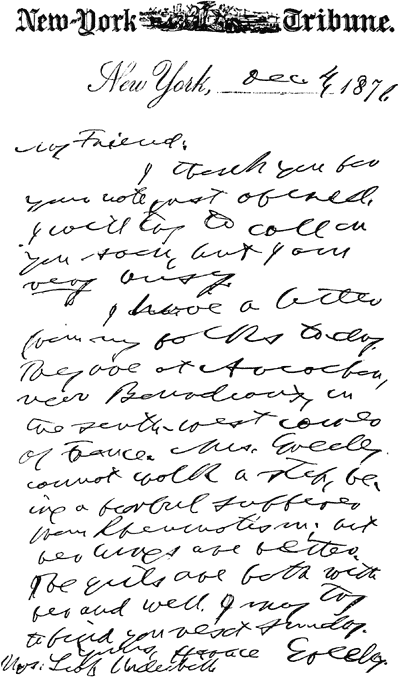 New-York Tribune.
New York, Dec 4, 1870
My Friend:
I thank you for
your note just opened.
I will try to call on
you soon, but I am
very busy.
I have a letter
from my folks today.
They are at Arcachon,
near Bordeaux, in
the south-west corner
of France. Mrs. Greeley
cannot walk a step, be-
ing a fearful sufferer
from Rheumatism; but
her lungs are better.
The girls are both with
her and well. I may try
to find you next Sunday.
Yours, Horace Greeley.
Mrs. Leah Underhill